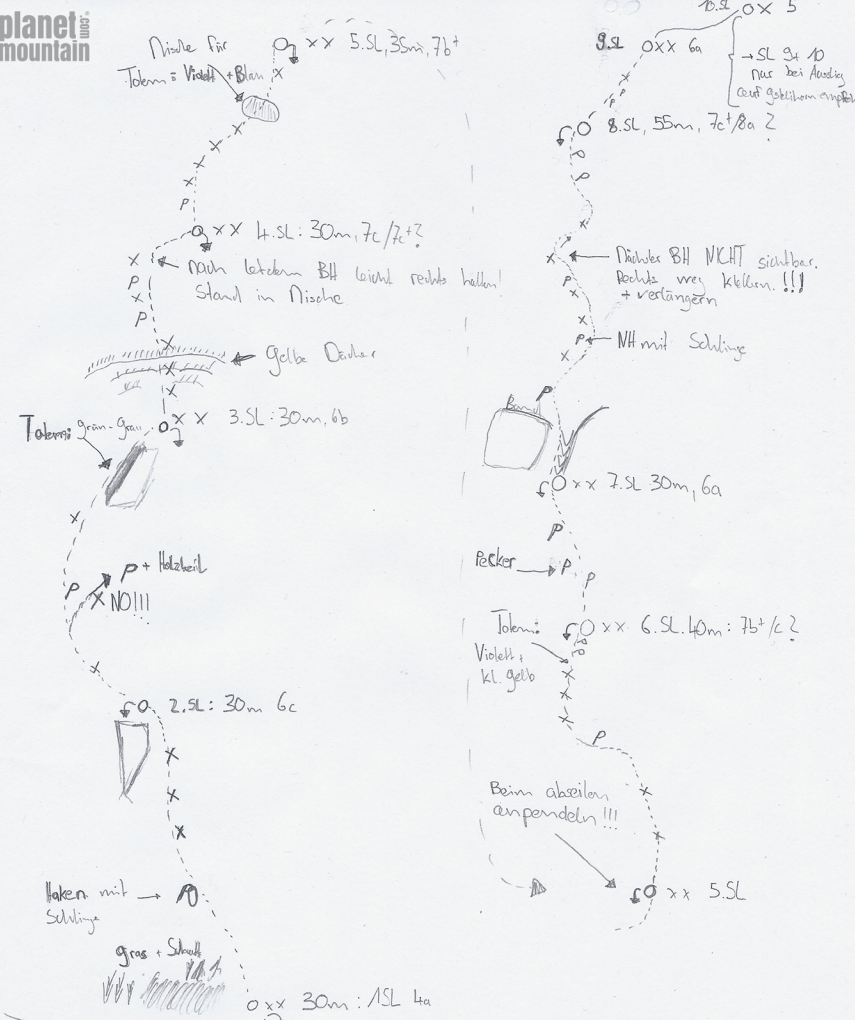 planet
mountain
.com
Nische für
Totem: Violett + Blau
x x 5.SL, 35m, 7b+
x x 4.SL: 30m, 7c/7c+?
nach letztem BH leicht rechts halten!
Stand in Nische
gelbe Dächer
x x 3.SL: 30m, 6b
Totem: grün-grau
P + Holzkeil
NO!!!
2.SL: 30m 6c
Haken mit
Schlinge
gras + Schutt
xx 30m: 1SL 4a
10.SL x 5
9.SL xx 6a
→ SL 9+10
nur bei Ausstieg
auf
8.SL, 55m, 7c+/8a ?
Nächster BH NICHT sichtbar.
Rechts weg klettern.!!!
+ verlängern
NH mit Schlinge
Band
xx 7.SL 30m, 6a
Pecker
Totem:
Violett +
kl. gelb
xx 6.SL. 40m: 7b+/c ?
Beim abseilen
anpendeln !!!
xx 5.SL